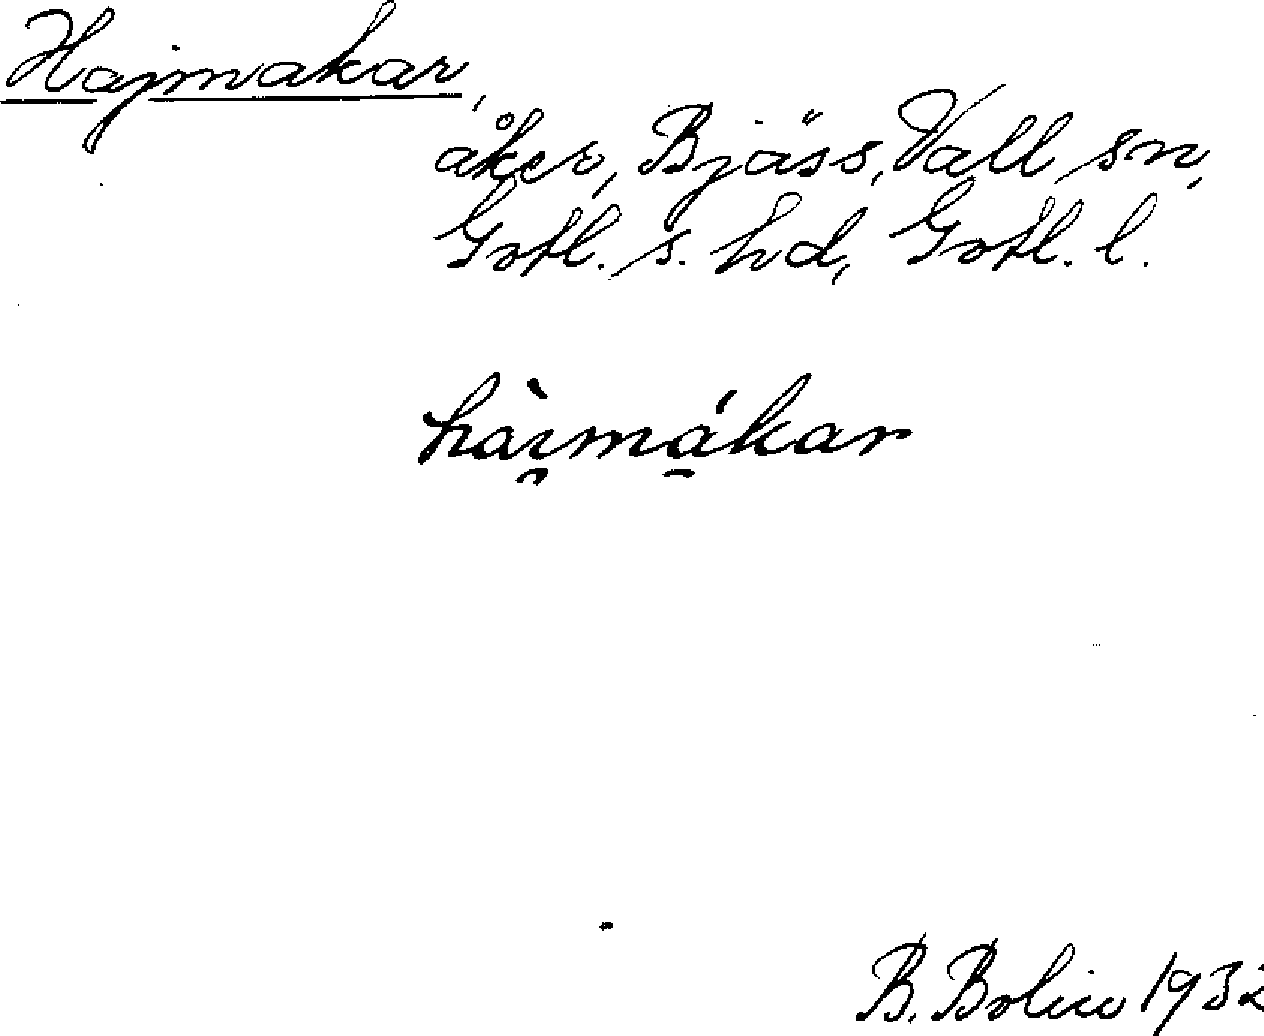 Hajmakar,
åker, Bjäss, Vall sn,
Gotl. s. hd, Gotl. l.
hài̯má̱kar
B. Bolin 1932